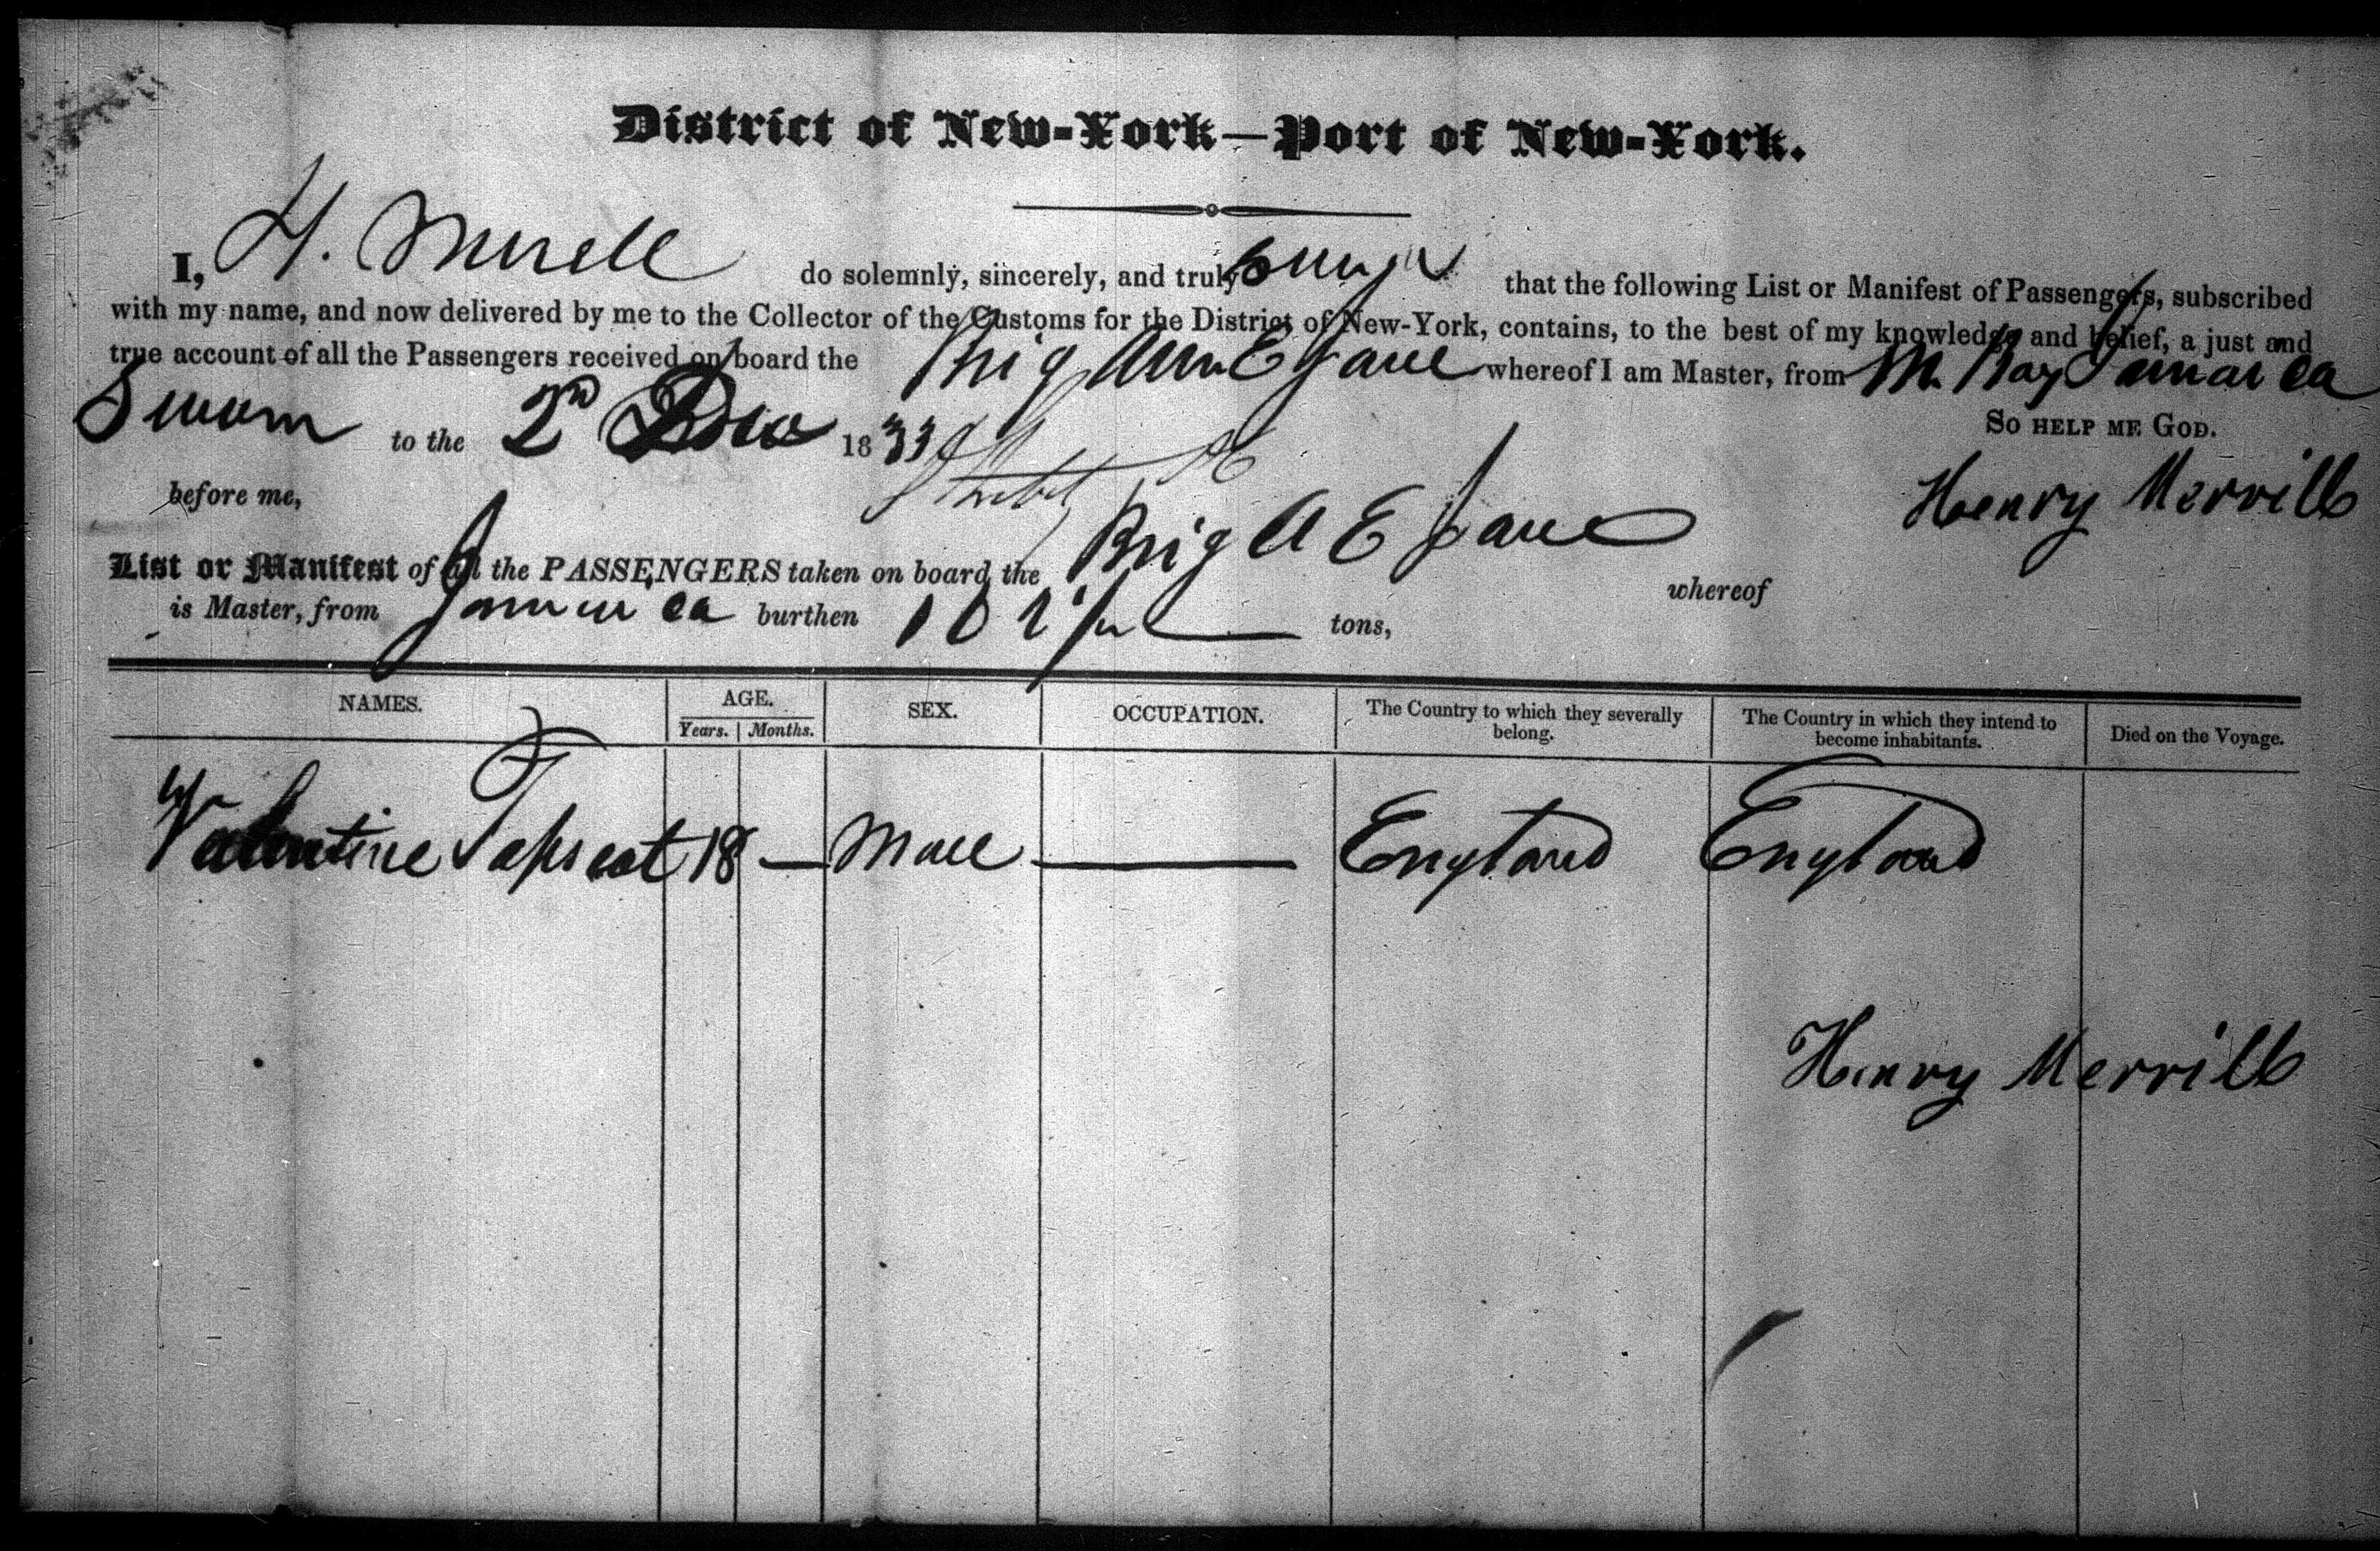 District of New-York—Port of New-York.
I, H. Merell do solemnly, sincerely, and truly swear that the following List or Manifest of Passengers, subscribed
with my name, and now delivered by me to the Collector of the Customs for the District of New-York, contains, to the best of my knowledge and belief, a just and
true account of all the Passengers received on board the Brig Ann E Jane whereof I am Master, from M. Bay Jamaica
Sworn to the 2nd Dec 1833
So help me God.
before me,
Henry Merrill
List or Manifest of all the PASSENGERS taken on board the Brig A E Jane whereof
is Master, from Jamaica burthen tons,
NAMES. AGE. SEX. OCCUPATION. The Country to which they severally belong. The Country in which they intend to become inhabitants. Died on the Voyage.
Years. Months.
Valentine Tapscot 18 — Male — England England
Henry Merrill